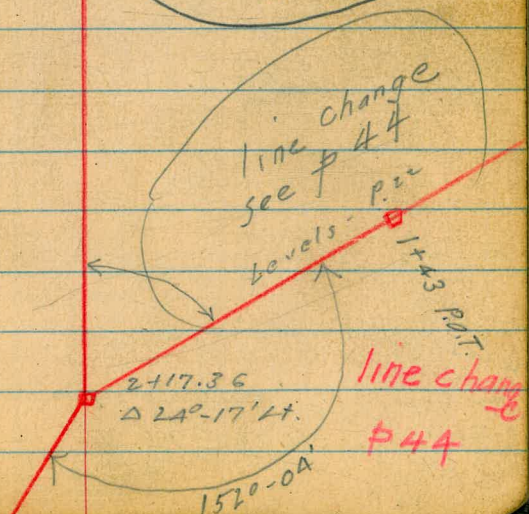 line change
see p 44
Levels - p.22
1+43 P.O.T.
2+17.36
Δ 24°-17' Lt.
line change
P44
152°-04'